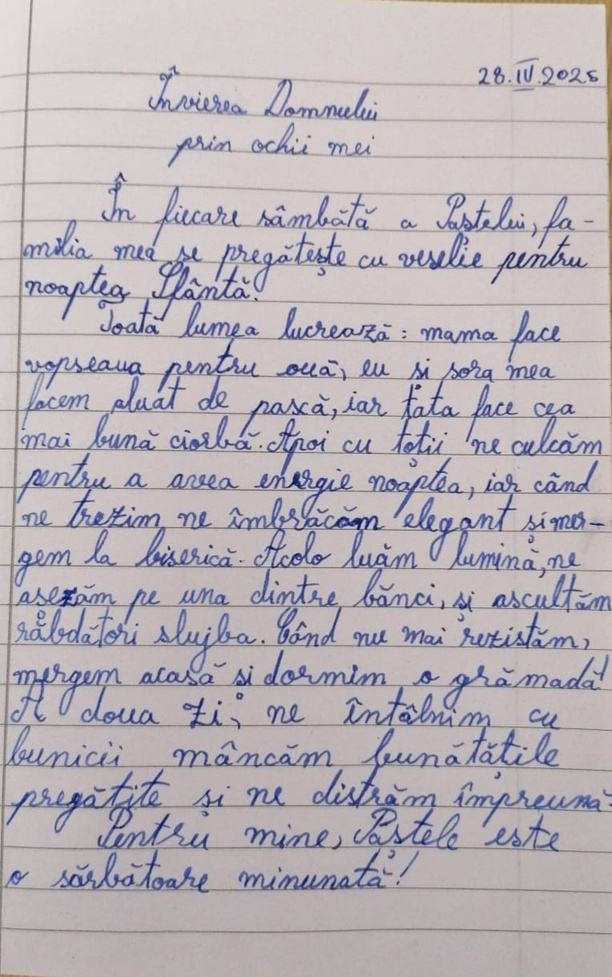 28.IV.2025
Învierea Domnului
prin ochii mei
În fiecare sâmbătă a Paștelui, fa-
milia mea se pregătește cu veselie pentru
noaptea Sfântă.
Toată lumea lucrează: mama face
vopseaua pentru ouă, eu și sora mea
facem aluat de pască, iar tata face cea
mai bună ciorbă. Apoi cu toții ne culcăm
pentru a avea energie noaptea, iar când
ne trezim ne îmbrăcăm elegant și mer-
gem la biserică. Acolo luăm lumină, ne
așezăm pe una dintre bănci, și ascultăm
răbdători slujba. Când nu mai rezistăm,
mergem acasă si dormim o grămadă!
A doua zi, ne întâlnim cu
bunicii mâncăm bunătățile
pregătite și ne distrăm împreună.
Pentru mine, Paștele este
o sărbătoare minunată!